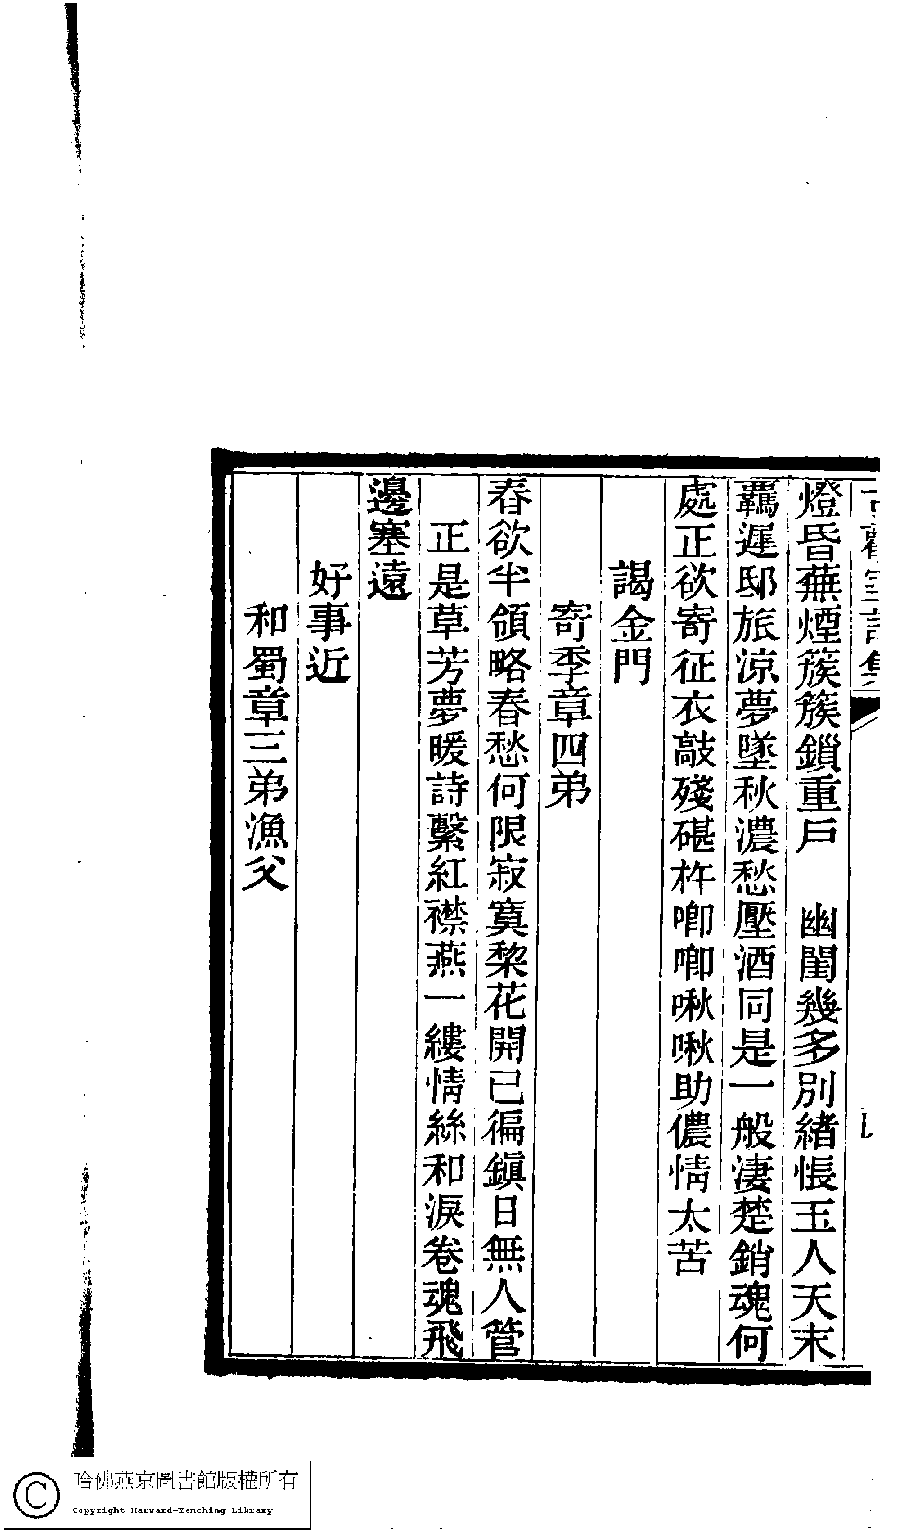 燈昏蕪煙簇簇鎖重戶　幽閨幾多別緒悵玉人天末
羈遲邸旅涼夢墜秋濃愁壓酒同是一般淒楚銷魂何
處正欲寄征衣敲殘碪杵啣啣啾啾助儂情太苦
謁金門
寄季章四弟
春欲半領略春愁何限寂寞棃花開已徧鎭日無人管
正是草芳夢暖詩繫紅襟燕一縷情絲和淚卷魂飛
邊塞遠
好事近
和蜀章三弟漁父
哈佛燕京圖書館版權所有
Copyright Harvard-Yenching Library